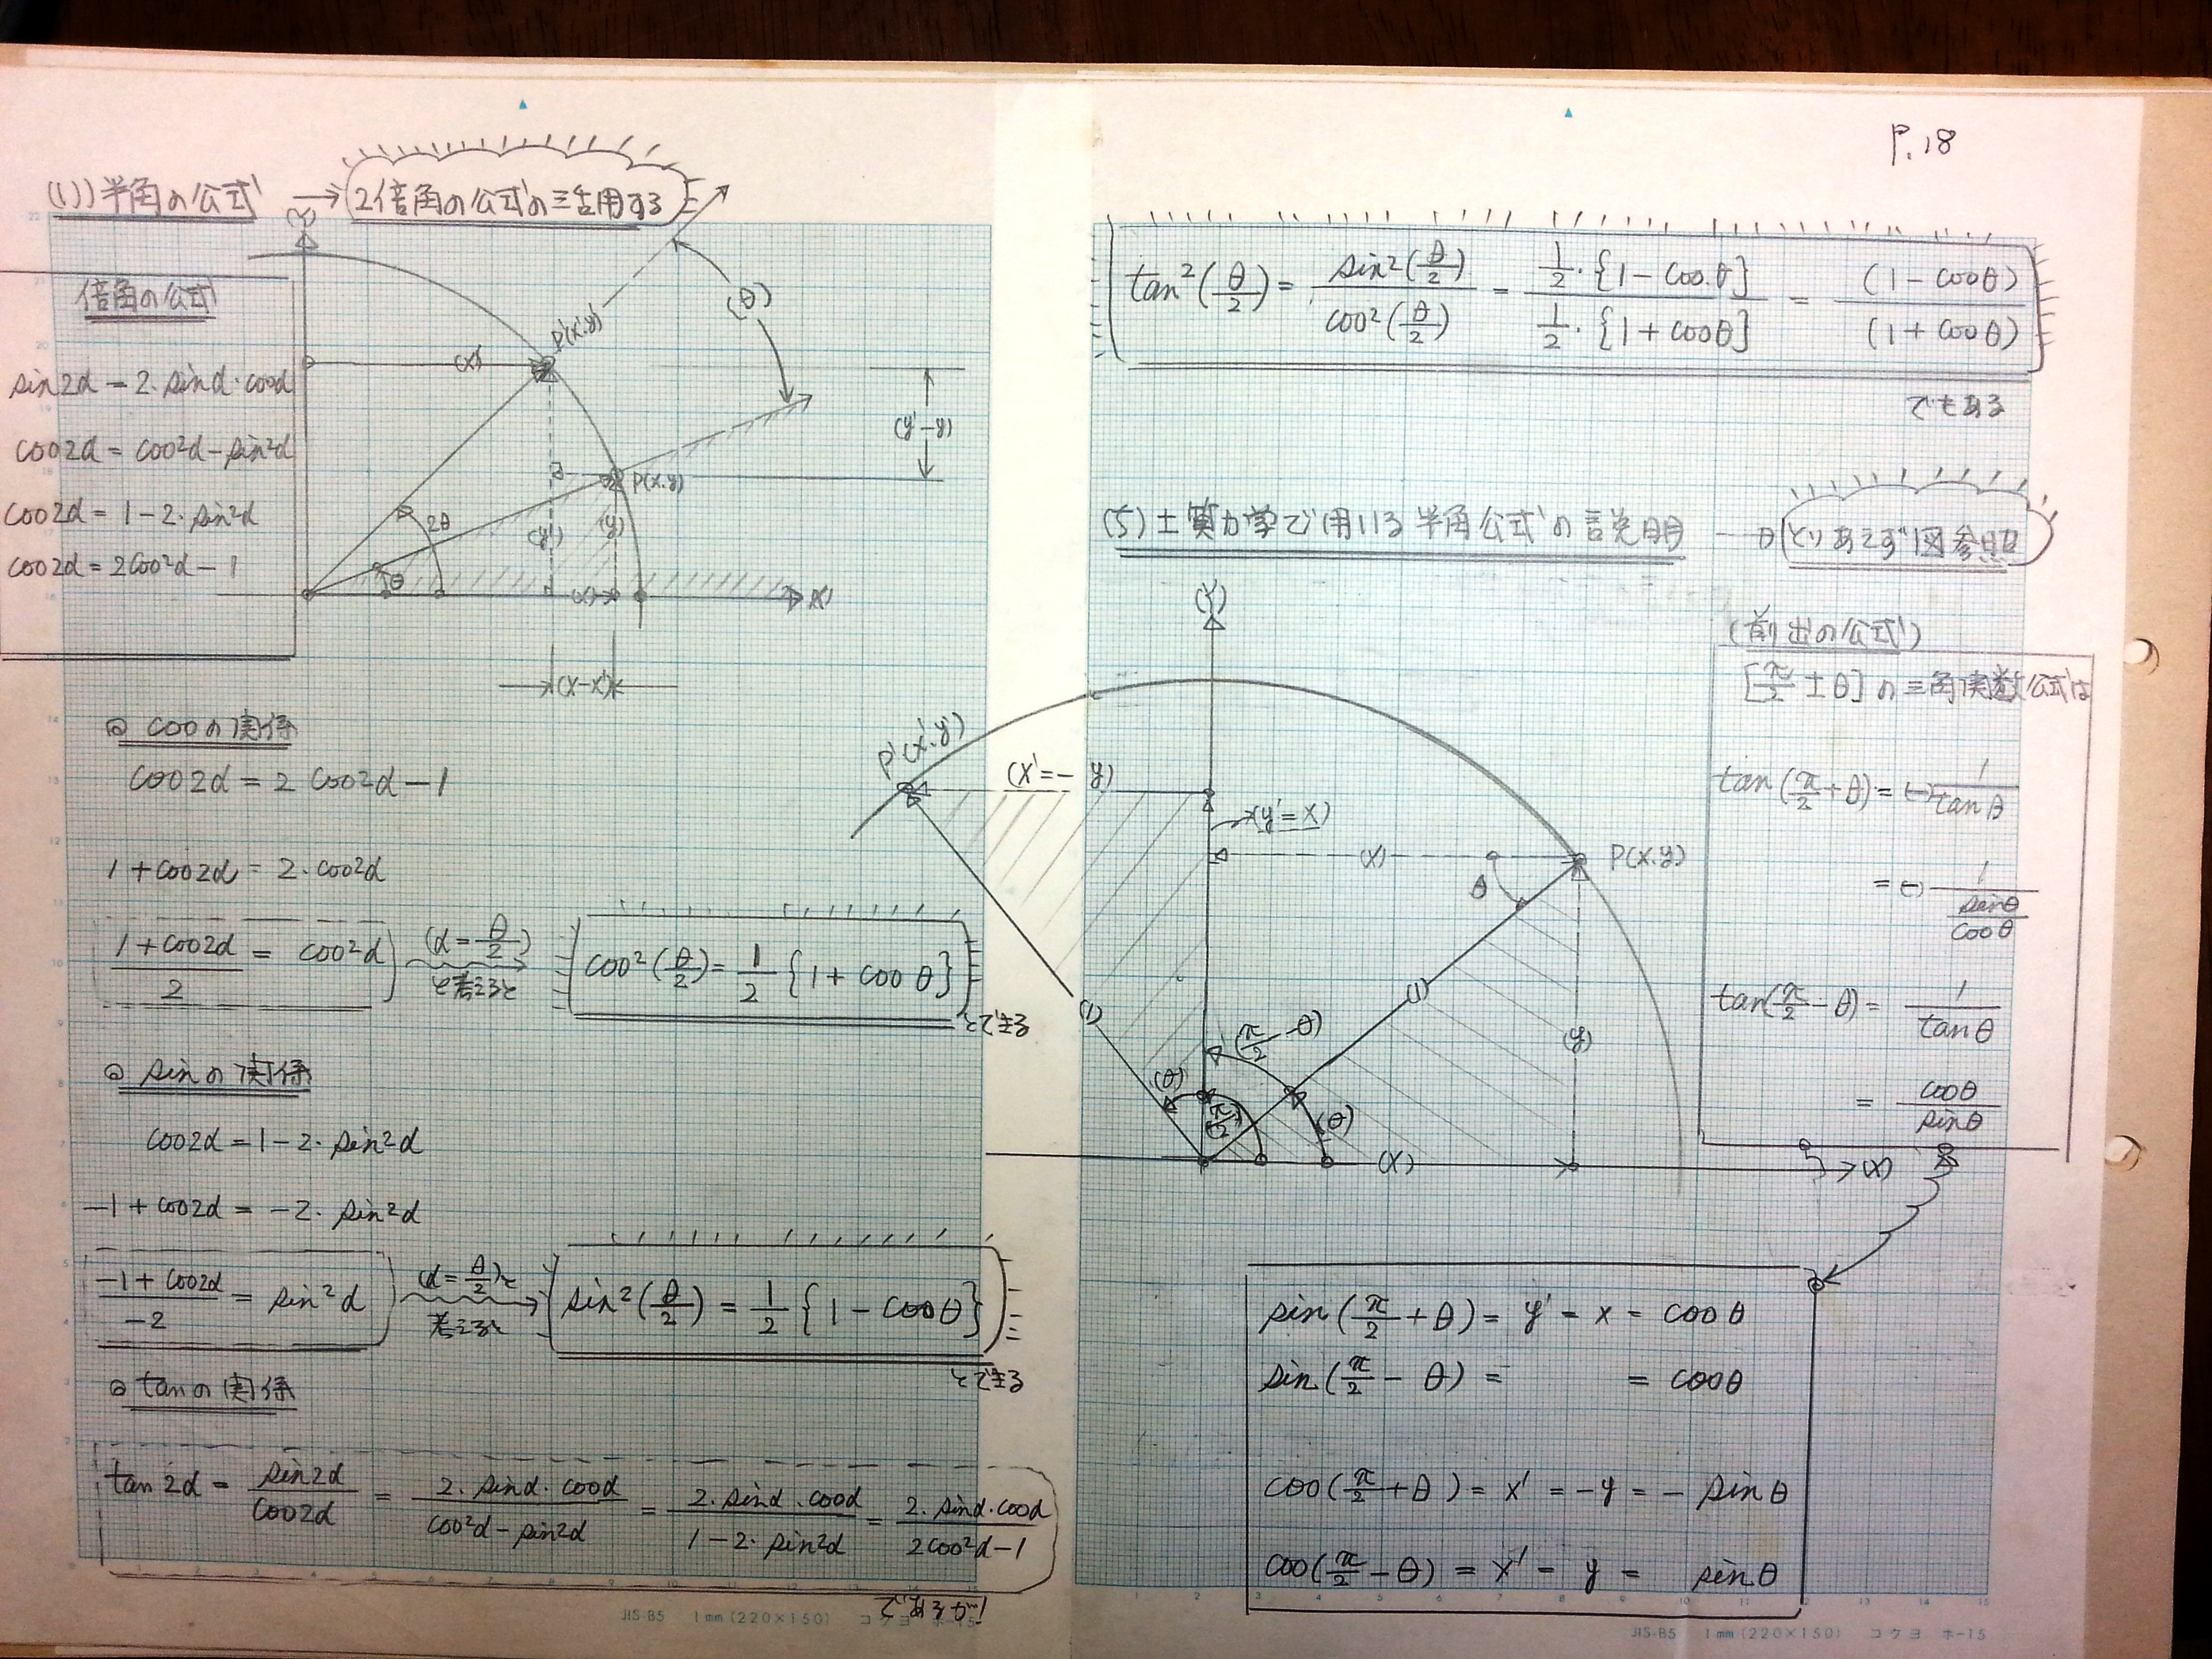 P.18
(1)) 半角の公式 → 2倍角の公式の三活用する
倍角の公式
sin2α = 2・sinα・cosα
cos2α = cos²α - sin²α
cos2α = 1 - 2・sin²α
cos2α = 2cos²α - 1
Y
(x')
P'(x'.y')
(θ)
(y'-y)
P(x.y)
2θ
(y')
(y)
θ
(x')
X
(x-x')
◎ cosの関係
cos2α = 2 cos²α - 1
1 + cos2α = 2・cos²α
(1 + cos2α)/2 = cos²α (α = θ/2) と考えると cos²(θ/2) = 1/2 {1 + cos θ}
とできる
◎ sinの関係
cos2α = 1 - 2・sin²α
-1 + cos2α = -2・sin²α
(-1 + cos2α)/-2 = sin²α (α = θ/2)と 考えると sin²(θ/2) = 1/2 {1 - cosθ}
とできる
◎ tanの関係
tan2α = sin2α/cos2α = 2・sinα・cosα/(cos²α - sin²α) = 2・sinα・cosα/(1 - 2・sin²α) = 2・sinα・cosα/(2cos²α - 1)
JIS-B5 1mm (220×150) コクヨ ホ-15
tan²(θ/2) = sin²(θ/2)/cos²(θ/2) = 1/2・{1 - cosθ}/1/2・{1 + cosθ} = (1 - cosθ)/(1 + cosθ)
でもある
(5) 土質力学で用いる半角公式の説明 → とりあえず図参照
(Y)
P'(x'.y')
(x' = -y)
(y' = x)
(x)
θ
P(x.y)
(1)
(1)
(π/2 - θ)
(y)
(θ)
(π/2)
(θ)
(x)
(x)
(前出の公式)
[π/2 ± θ] の三角関数公式は
tan(π/2 + θ) = (-) 1/tanθ
= (-) 1/(sinθ/cosθ)
tan(π/2 - θ) = 1/tanθ
= cosθ/sinθ
sin(π/2 + θ) = y' = x = cosθ
sin(π/2 - θ) = = cosθ
cos(π/2 + θ) = x' = -y = - sinθ
cos(π/2 - θ) = x' = y = sinθ
JIS-B5 1mm (220×150) コクヨ ホ-15